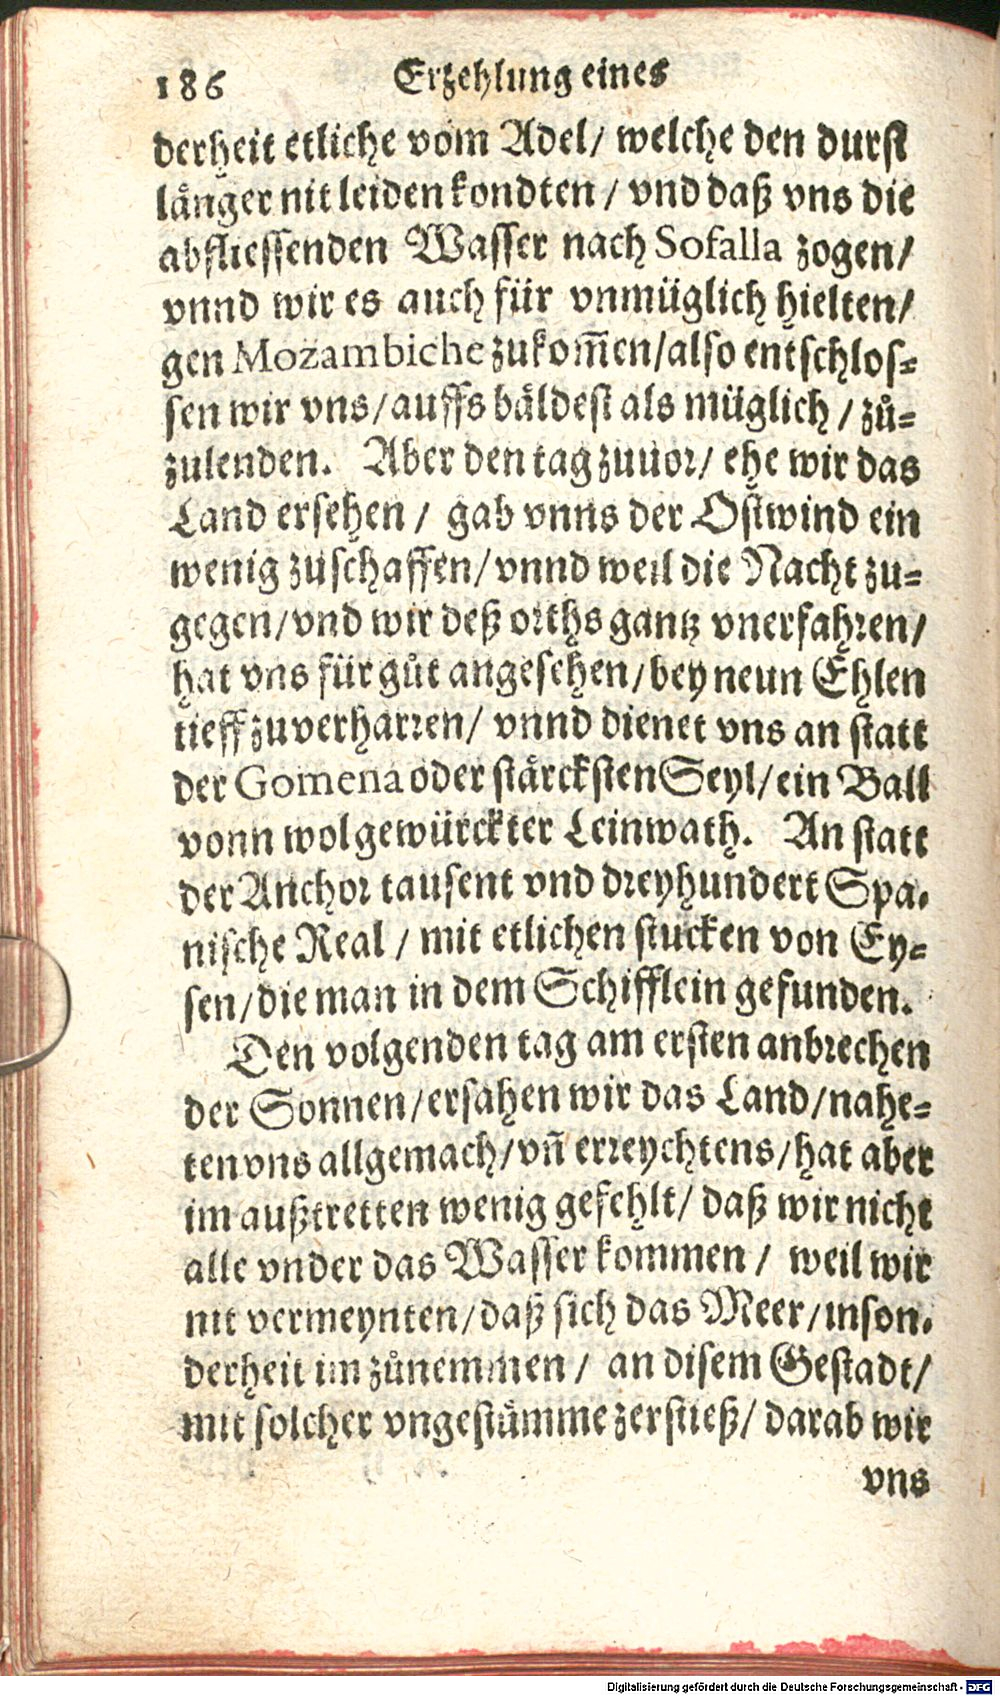 186 Erzehlung eines
derheit etliche vom Adel/ welche den durst
länger nit leiden kondten / vnd daß vns die
abfliessenden Wasser nach Sofalla zogen/
vnnd wir es auch für vnmüglich hielten/
gen Mozambiche zukom̃en/also entschlos=
sen wir vns/auffs bäldest als müglich / zů=
zulenden. Aber den tag zuuor/ ehe wir das
Land ersehen / gab vnns der Ostwind ein
wenig zuschaffen/vnnd weil die Nacht zu=
gegen/vnd wir deß orths gantz vnerfahren/
hat vns für gůt angesehen/bey neun Ehlen
tieff zuverharren/ vnnd dienet vns an statt
der Gomena oder stärcksten Seyl/ein Ball
vonn wolgewürckter Leinwath. An statt
der Anchor tausent vnd dreyhundert Spa.
nische Real / mit etlichen stucken von Ey=
sen/die man in dem Schifflein gefunden.
Den volgenden tag am ersten anbrechen
der Sonnen/ersahen wir das Land/nahe=
ten vns allgemach/vñ erreychtens/hat aber
im außtretten wenig gefehlt/ daß wir nicht
alle vnder das Wasser kommen / weil wir
nit vermeynten/daß sich das Meer/inson.
derheit im zůnemmen / an disem Gestadt/
mit solcher vngestümme zerstieß/ darab wir
vns
Digitalisierung gefördert durch die Deutsche Forschungsgemeinschaft - DFG